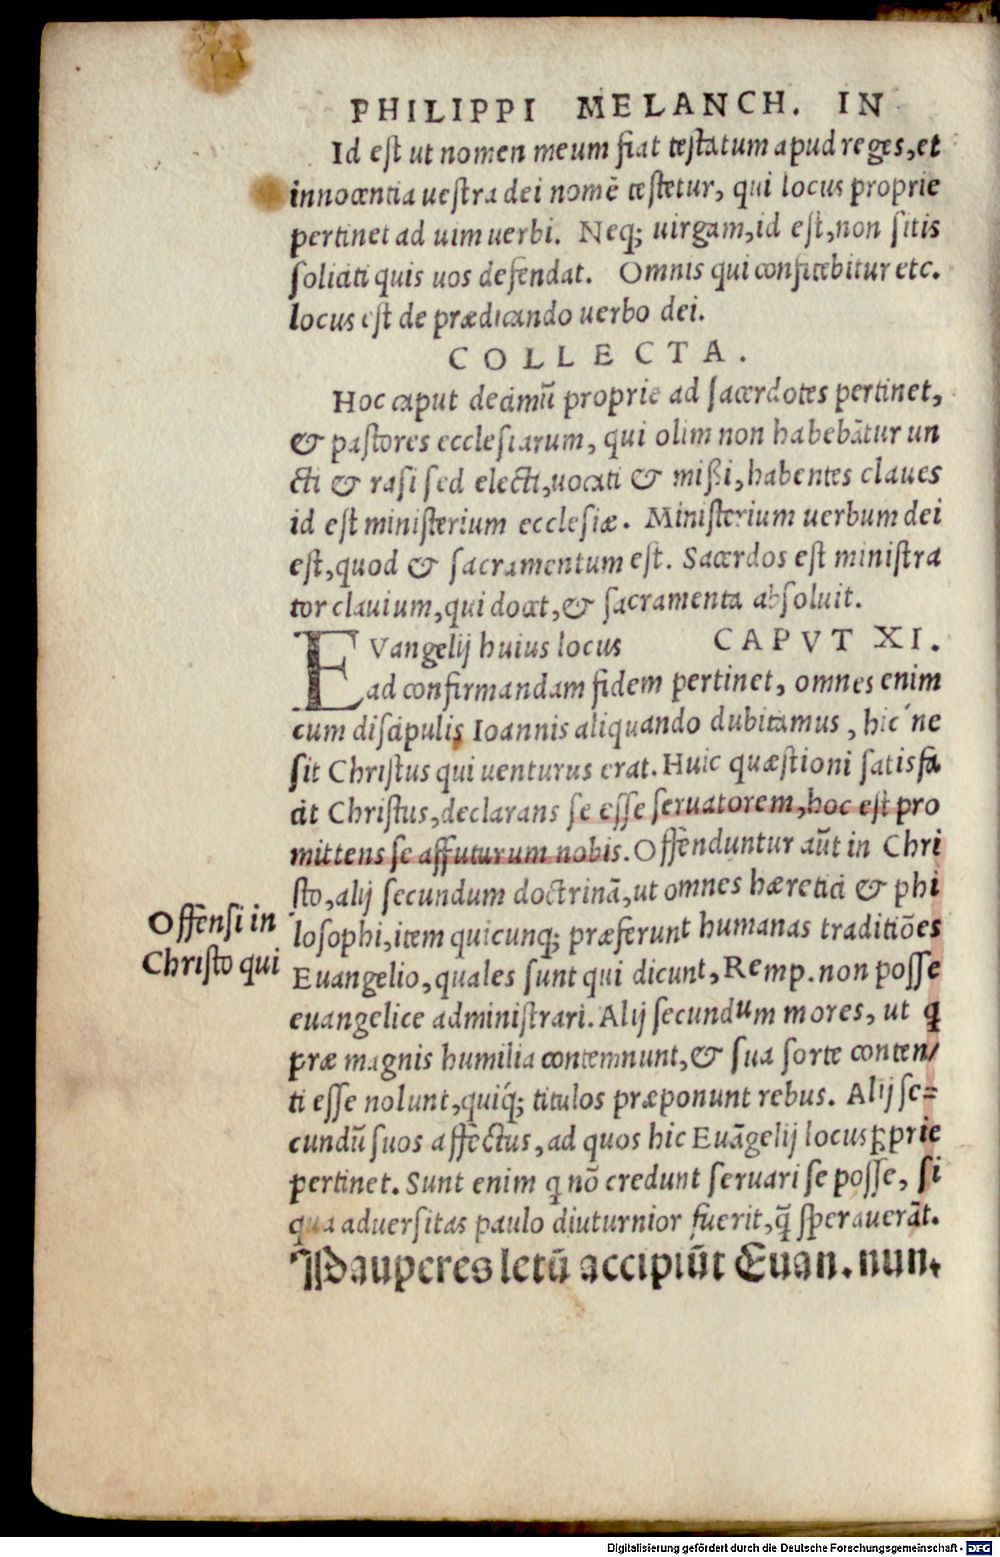 PHILIPPI MELANCH. IN
Id eſt ut nomen meum fiat teſtatum apud reges, et
innocentia ueſtra dei nomẽ teſtetur, qui locus proprie
pertinet ad uim uerbi. Neq; uirgam, id eſt, non ſitis
ſoliciti quis uos defendat. Omnis qui confitebitur etc.
locus eſt de prædicando uerbo dei.
COLLECTA.
Hoc caput decimũ proprie ad ſacerdotes pertinet,
& paſtores eccleſiarum, qui olim non habebãtur un
cti & raſi ſed electi, uocati & mißi, habentes claues
id eſt miniſterium eccleſiæ. Miniſterium uerbum dei
eſt, quod & ſacramentum eſt. Sacerdos eſt miniſtra
tor clauium, qui docet, & ſacramenta abſoluit.
EVangelij huius locus CAPVT XI.
ad confirmandam fidem pertinet, omnes enim
cum diſcipulis Ioannis aliquando dubitamus, hic ́ne
ſit Chriſtus qui uenturus erat. Huic quæſtioni ſatisfa
cit Chriſtus, declarans ſe eſſe ſeruatorem, hoc eſt pro
mittens ſe affuturum nobis. Offenduntur aũt in Chri
ſto, alij ſecundum doctrinã, ut omnes hæretici & phi
Offenſi in
Chriſto qui
loſophi, item quicunq; præferunt humanas traditiões
Euangelio, quales ſunt qui dicunt, Remp. non poſſe
euangelice adminiſtrari. Alij ſecundum mores, ut q
præ magnis humilia contemnunt, & ſua ſorte conten/
ti eſſe nolunt, quiq́; titulos præponunt rebus. Alij ſe=
cundũ ſuos affectus, ad quos hic Euãgelij locus ꝓprie
pertinet. Sunt enim q nõ credunt ſeruari ſe poſſe, ſi
qua aduerſitas paulo diuturnior fuerit, q̃ ſperauerãt.
Pauperes letũ accipiũt Euan. nun.
Digitalisierung gefördert durch die Deutsche Forschungsgemeinschaft - DFG